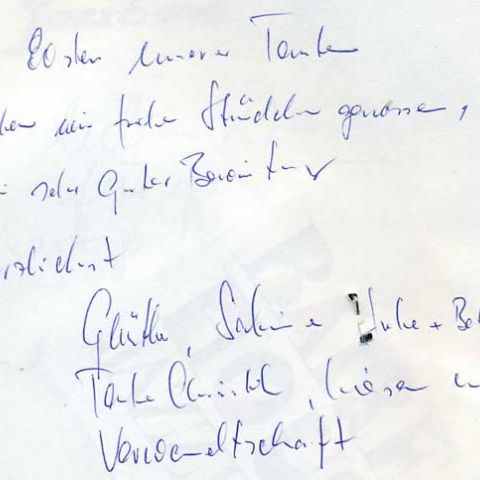 80sten unserer Tante
ben wir frohe Stunden genossen,
sehr guter Bewirtung
rzlichst
Günther, Sabine Julie + Be
Tante Christel,
Verwandtschaft